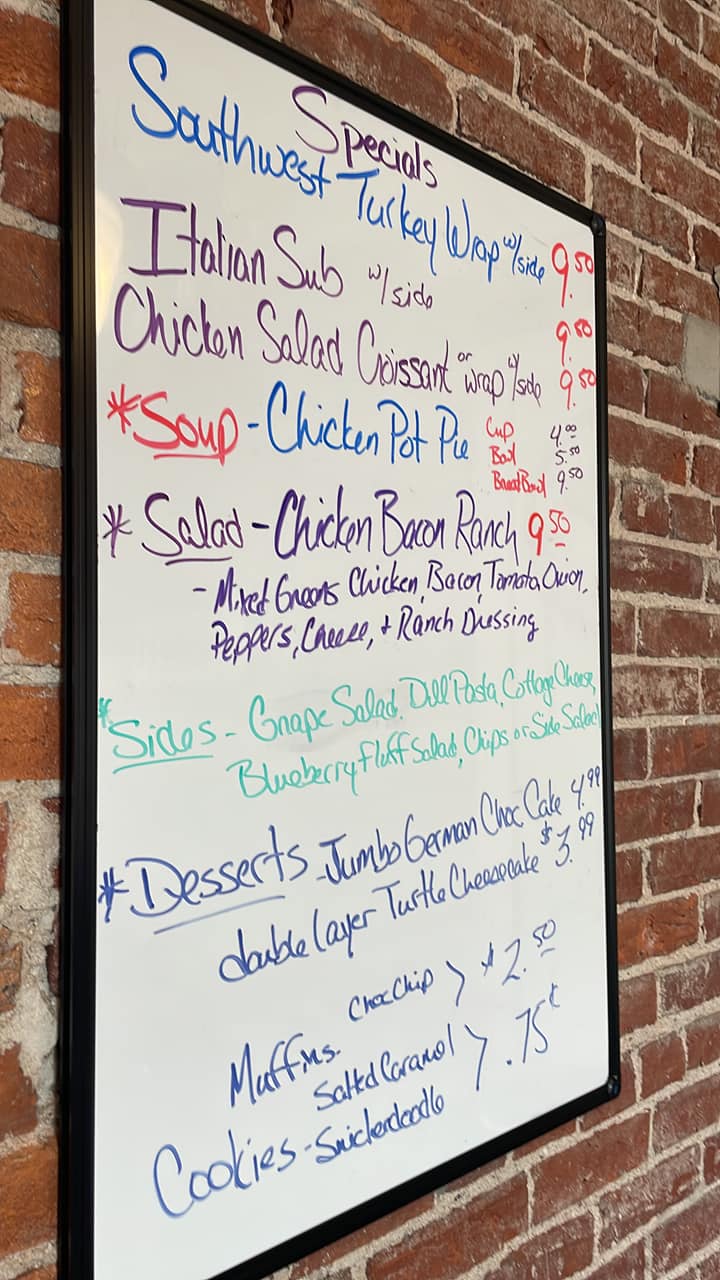 Specials
Southwest Turkey Wrap w/side 9.50
Italian Sub w/side 9.50
Chicken Salad Croissant or wrap w/side 9.50
*Soup - Chicken Pot Pie Cup 4.00
Bowl 5.50
Bread Bowl 9.50
* Salad - Chicken Bacon Ranch 9.50
- Mixed Greens Chicken, Bacon, Tomato, Onion,
Peppers, Cheese, + Ranch Dressing
*Sides - Grape Salad, Dill Pasta, Cottage Cheese,
Blueberry Fluff Salad, Chips or Side Salad
*Desserts - Jumbo German Choc Cake 4.99
double layer Turtle Cheesecake $3.99
Muffins - Choc Chip > $2.50
Salted Caramel > .75¢
Cookies - Snickerdoodle